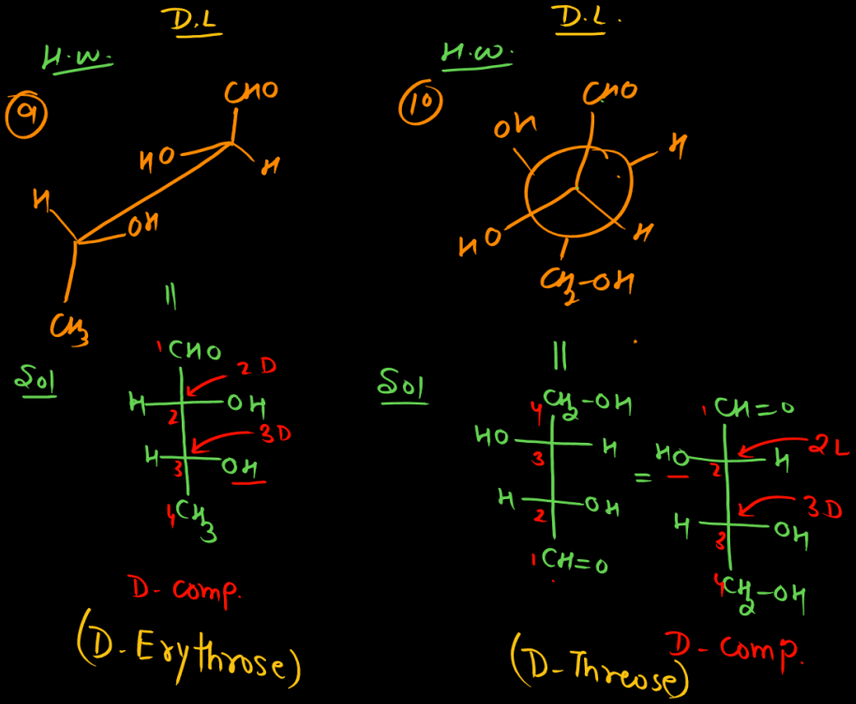 D.L
H.W.
9
CHO
HO
H
H
OH
CH3
||
Sol
1CHO
2D
H OH
2
3D
H OH
3
4CH3
D-Comp.
(D-Erythrose)
D.L.
H.W.
10
CHO
OH
H
HO
H
CH2-OH
||
Sol
4 CH2-OH
HO H
3
H OH
2
1CH=O
=
1CH=O
HO H
2
2L
3D
H OH
3
4CH2-OH
D-Comp.
(D-Threose)